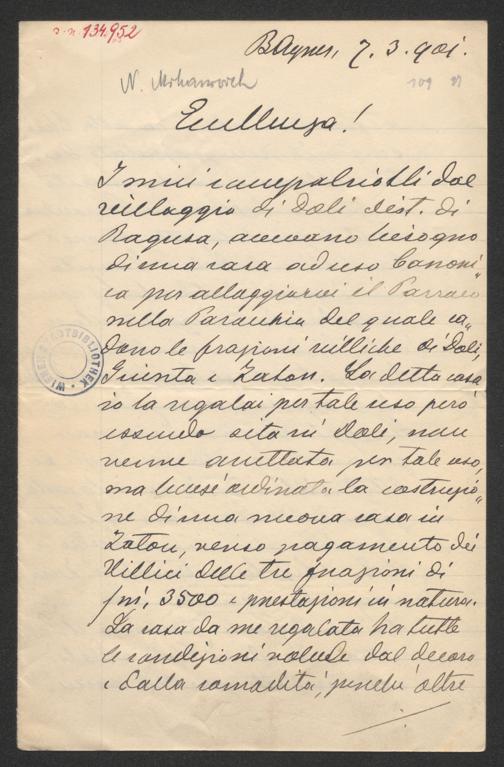 J.N. 134.952
B Ayres, 7. 3. 901.
N. Mihanovich
109 91
Eccellenza!
I miei compatriotti dal
villaggio di Doli dist. di
Ragusa, avevano bisogno
di una casa ad uso Canoni„
ca per allaggiarvi il Parroco
nella Parocchia del quale ca„
dono le frazioni villiche di Doli,
e Zaton. La detta casa
io la regalai per tale uso però
essendo sita in Doli, non
venne accettata per tale uso,
ma bensì ordinata la costruzio„
ne di una nuova casa in
Zaton, verso pagamento dei
Villici delle tre frazioni di
fni. 3500 e prestazioni in natura.
La casa da me regalata ha tutte
le condizioni volute dal decoro
e dalla comodità, perchè oltre
WIENER STADTBIBLIOTHEK